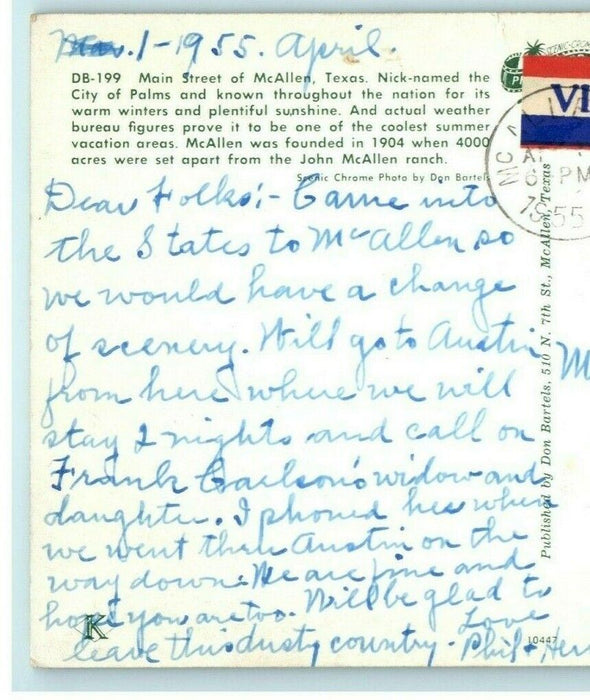 Mar. 1-1955. April.
DB-199 Main Street of McAllen, Texas. Nick-named the
City of Palms and known throughout the nation for its
warm winters and plentiful sunshine. And actual weather
bureau figures prove it to be one of the coolest summer
vacation areas. McAllen was founded in 1904 when 4000
acres were set apart from the John McAllen ranch.
Scenic Chrome Photo by Don Bartels
Dear Folks:- Came into
the States to McAllen so
we would have a change
of scenery. Will go to Austin
from here where we will
stay 2 nights and call on
Frank Carlson's widow and
daughter. I phoned her when
we went thru Austin on the
way down. We are fine and
hope you are too. Will be glad to
leave this dusty country. Love
Phil + Her
K
10447
Published by Don Bartels, 510 N. 7th St., McAllen, Texas
VI
MC A
6 PM
1955
M